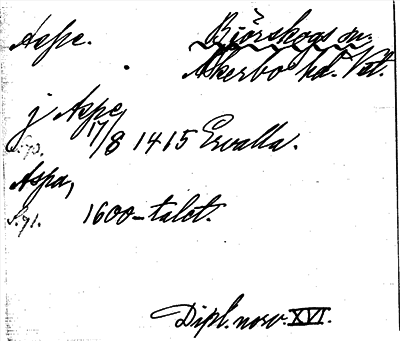 Aspe. Björskogs sn.
Åkerbo hd. Vstl.
j Aspe
17/8 1415 Ervalla.
S. 70.
Aspa,
S. 71. 1600-talet.
Dipl. norv. XVI.